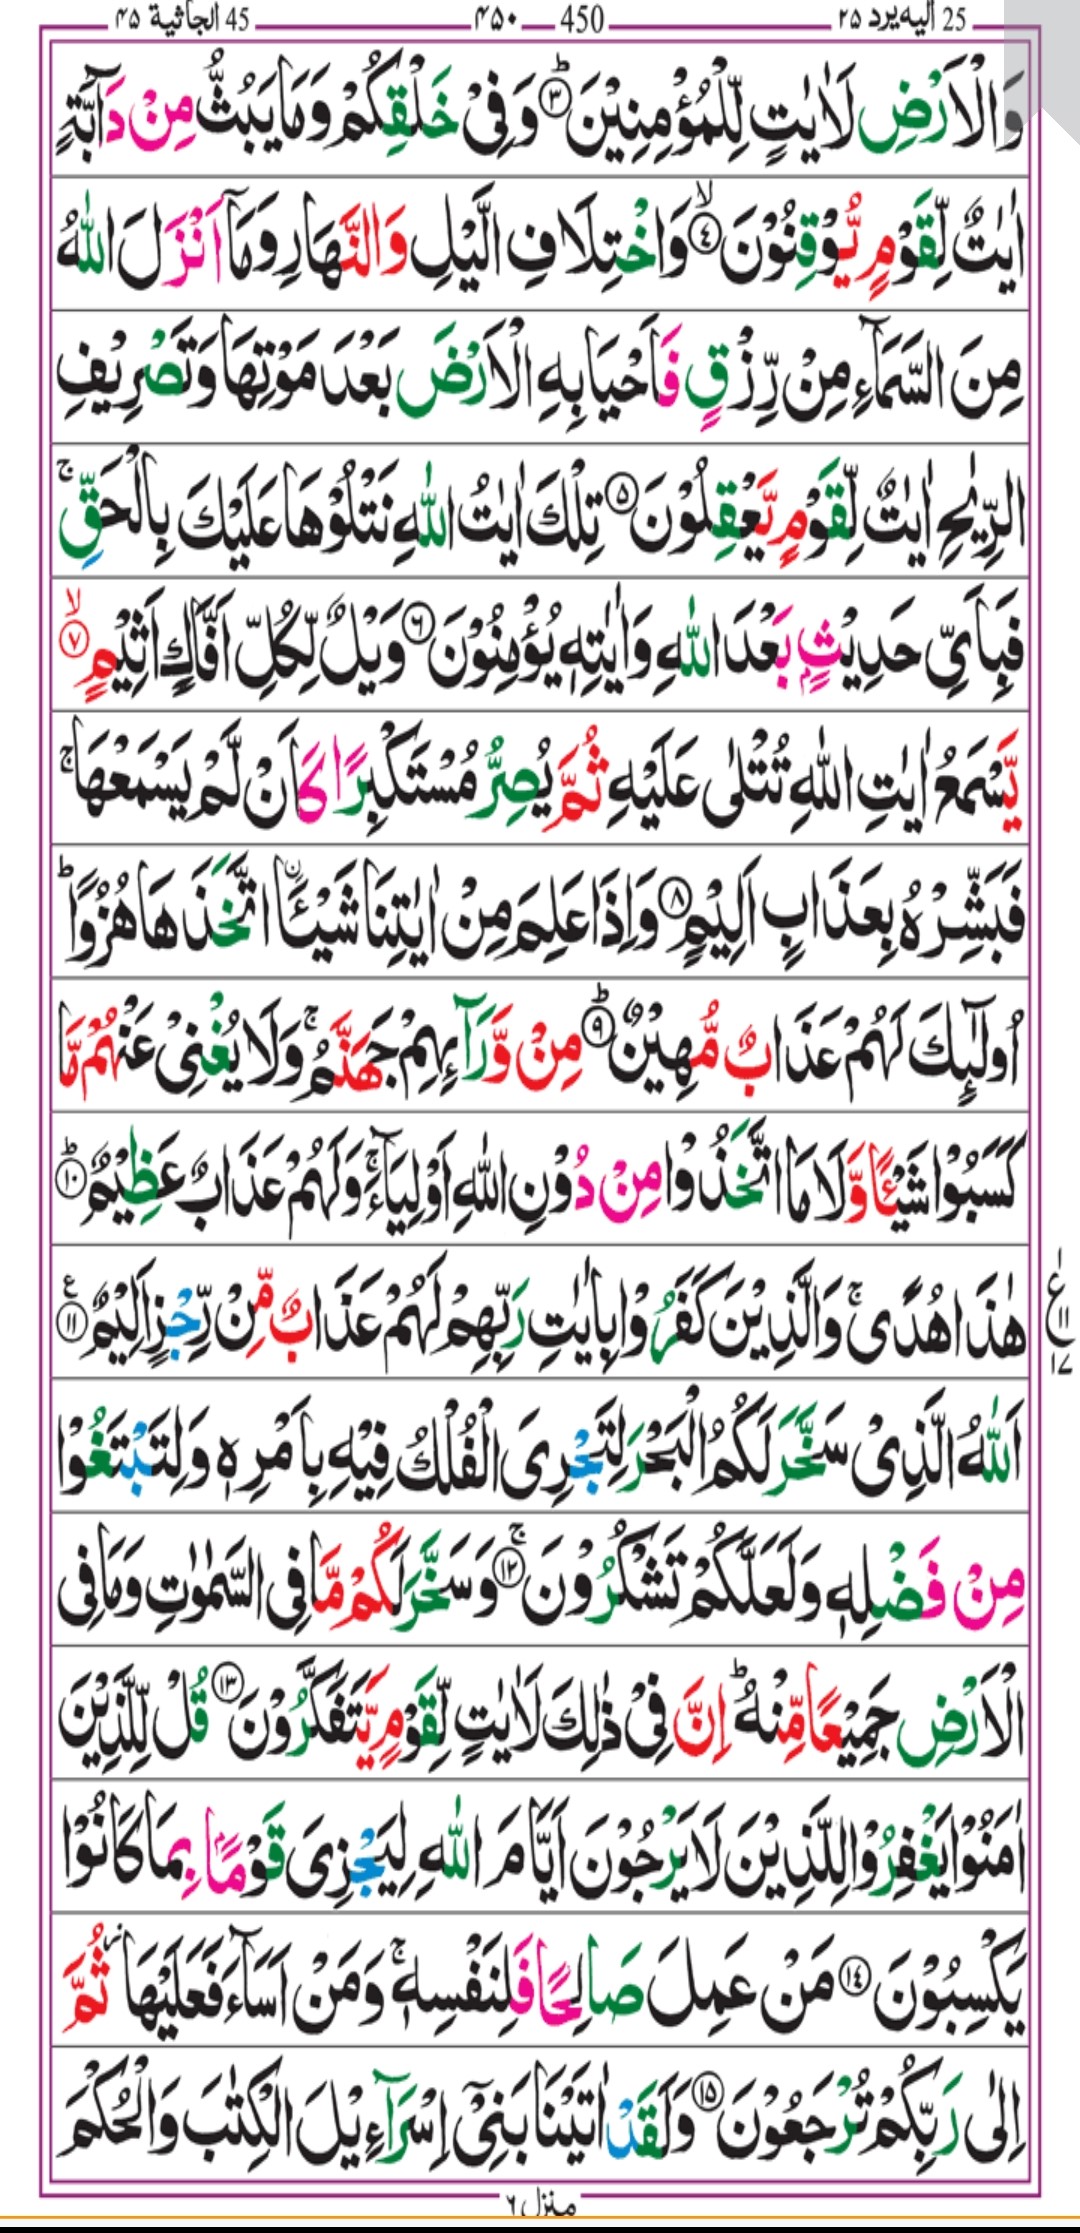 25 الیه یرد ۲۵
450 ۴۵۰
45 الجاثية ۴۵
وَالْاَرْضِ لَاٰيٰتٍ لِّلْمُؤْمِنِيْنَ ؕ﴿۳﴾ وَفِيْ خَلْقِكُمْ وَمَا يَبُثُّ مِنْ دَآبَّةٍ
اٰيٰتٌ لِّقَوْمٍ يُّوْقِنُوْنَ ۙ﴿۴﴾ وَاخْتِلَافِ الَّيْلِ وَالنَّهَارِ وَمَاۤ اَنْزَلَ اللّٰهُ
مِنَ السَّمَآءِ مِنْ رِّزْقٍ فَاَحْيَا بِهِ الْاَرْضَ بَعْدَ مَوْتِهَا وَتَصْرِيْفِ
الرِّيٰحِ اٰيٰتٌ لِّقَوْمٍ يَّعْقِلُوْنَ ﴿۵﴾ تِلْكَ اٰيٰتُ اللّٰهِ نَتْلُوْهَا عَلَيْكَ بِالْحَقِّ ۚ
فَبِاَيِّ حَدِيْثٍۭ بَعْدَ اللّٰهِ وَاٰيٰتِهٖ يُؤْمِنُوْنَ ﴿۶﴾ وَيْلٌ لِّكُلِّ اَفَّاكٍ اَثِيْمٍ ۙ﴿۷﴾
يَّسْمَعُ اٰيٰتِ اللّٰهِ تُتْلٰى عَلَيْهِ ثُمَّ يُصِرُّ مُسْتَكْبِرًا كَاَنْ لَّمْ يَسْمَعْهَا ۚ
فَبَشِّرْهُ بِعَذَابٍ اَلِيْمٍ ﴿۸﴾ وَاِذَا عَلِمَ مِنْ اٰيٰتِنَا شَيْـًٔا ۨاتَّخَذَهَا هُزُوًا ؕ
اُولٰٓئِكَ لَهُمْ عَذَابٌ مُّهِيْنٌ ؕ﴿۹﴾ مِنْ وَّرَآئِهِمْ جَهَنَّمُ ۚ وَلَا يُغْنِيْ عَنْهُمْ مَّا
كَسَبُوْا شَيْـًٔا وَّلَا مَا اتَّخَذُوْا مِنْ دُوْنِ اللّٰهِ اَوْلِيَآءَ ۚ وَلَهُمْ عَذَابٌ عَظِيْمٌ ؕ﴿۱۰﴾
هٰذَا هُدًى ۚ وَالَّذِيْنَ كَفَرُوْا بِاٰيٰتِ رَبِّهِمْ لَهُمْ عَذَابٌ مِّنْ رِّجْزٍ اَلِيْمٌ ﴿۱۱﴾ ع
ع ۱۱ ۱۷
اَللّٰهُ الَّذِيْ سَخَّرَ لَكُمُ الْبَحْرَ لِتَجْرِيَ الْفُلْكُ فِيْهِ بِاَمْرِهٖ وَلِتَبْتَغُوْا
مِنْ فَضْلِهٖ وَلَعَلَّكُمْ تَشْكُرُوْنَ ۚ﴿۱۲﴾ وَسَخَّرَ لَكُمْ مَّا فِي السَّمٰوٰتِ وَمَا فِي
الْاَرْضِ جَمِيْعًا مِّنْهُ ؕ اِنَّ فِيْ ذٰلِكَ لَاٰيٰتٍ لِّقَوْمٍ يَّتَفَكَّرُوْنَ ﴿۱۳﴾ قُلْ لِّلَّذِيْنَ
اٰمَنُوْا يَغْفِرُوْا لِلَّذِيْنَ لَا يَرْجُوْنَ اَيَّامَ اللّٰهِ لِيَجْزِيَ قَوْمًۢا بِمَا كَانُوْا
يَكْسِبُوْنَ ﴿۱۴﴾ مَنْ عَمِلَ صَالِحًا فَلِنَفْسِهٖ ۚ وَمَنْ اَسَآءَ فَعَلَيْهَا ؗ ثُمَّ
اِلٰى رَبِّكُمْ تُرْجَعُوْنَ ﴿۱۵﴾ وَلَقَدْ اٰتَيْنَا بَنِيْۤ اِسْرَآءِيْلَ الْكِتٰبَ وَالْحُكْمَ
منزل ۶